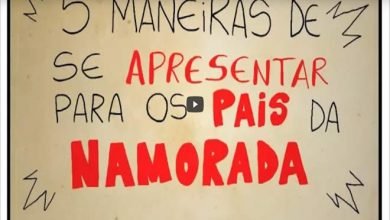 5 MANEIRAS DE
SE APRESENTAR
PARA OS PAIS DA
NAMORADA